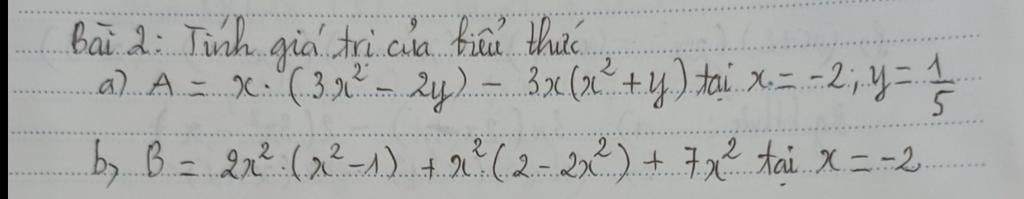 Bài 2: Tính giá trị của biểu thức
a) A = x. (3x² - 2y) - 3x(x² + y) tại x = -2; y = 1/5
b, B = 2x². (x² - 1) + x². (2 - 2x²) + 7x² tại x = -2